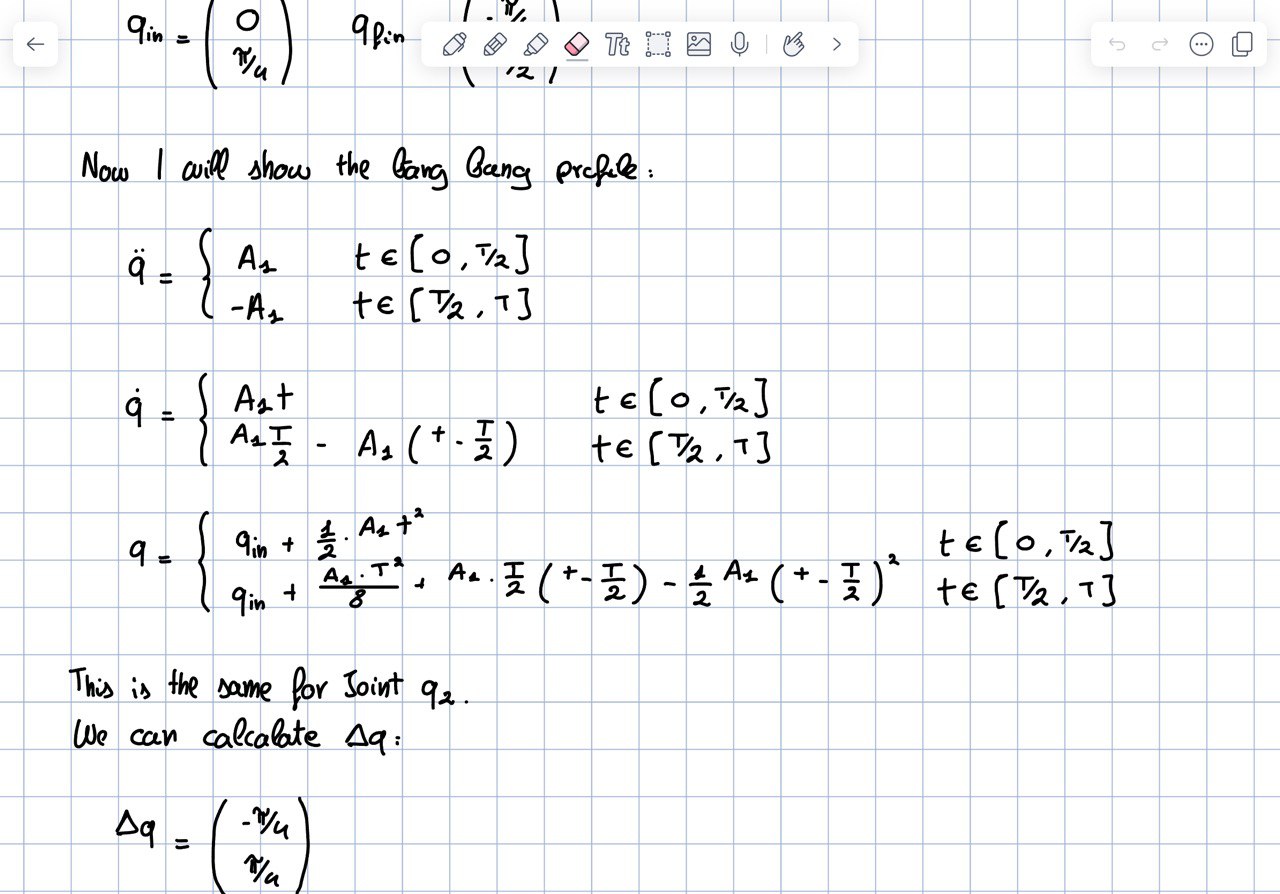 q_in = ( 0 π/4 ) q_fin
Now I will show the bang bang profile:
q̈ = { A₁ t ∈ [0, T/2]
-A₁ t ∈ [T/2, T]
q̇ = { A₁t t ∈ [0, T/2]
A₁ T/2 - A₁ (t - T/2) t ∈ [T/2, T]
q = { q_in + 1/2 · A₁ t² t ∈ [0, T/2]
q_in + A₁ · T²/8 + A₁ · T/2 (t - T/2) - 1/2 A₁ (t - T/2)² t ∈ [T/2, T]
This is the same for Joint q₂.
We can calcalate Δq:
Δq = ( -π/4 π/4 )